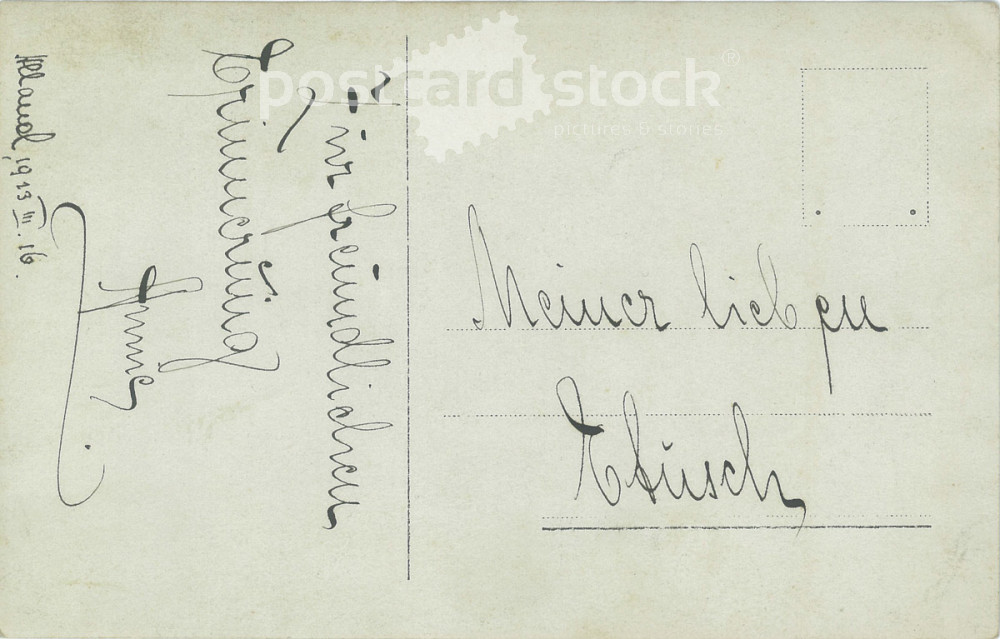 postcard stock®
pictures & stories
Zur freundlichen
Erinnerung
Annie
Alland, 1913 III. 16.
Meiner lieben
Etusch